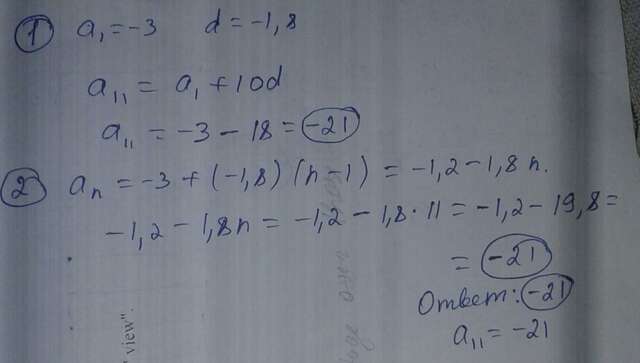 ① a₁ = -3 d = -1,8
a₁₁ = a₁ + 10d
a₁₁ = -3 - 18 = -21
② aₙ = -3 + (-1,8) (n - 1) = -1,2 - 1,8 n.
-1,2 - 1,8n = -1,2 - 1,8 · 11 = -1,2 - 19,8 =
= -21
Ответ: -21
a₁₁ = -21
view".